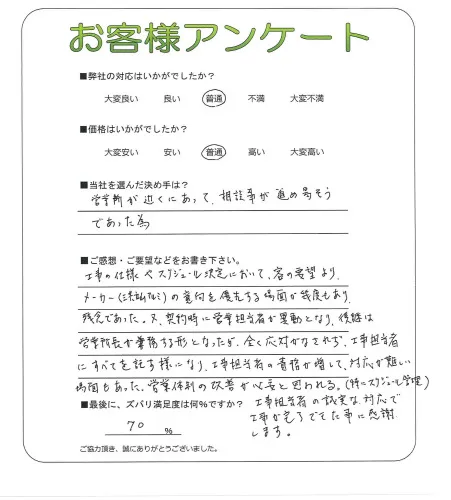 お客様アンケート
■弊社の対応はいかがでしたか？
大変良い 良い 普通 不満 大変不満
■価格はいかがでしたか？
大変安い 安い 普通 高い 大変高い
■当社を選んだ決め手は？
営業所が近くにあって、相談事が進め易そう
であった為
■ご感想・ご要望などをお書き下さい。
工事の仕様やスケジュール決定において、客の要望より、
メーカー(三協立山アルミ)の意向を優先する場面が幾度もあり、
残念であった。又、契約時に営業担当者が異動となり、後継は
営業所長が兼務する形となったが、全く応対がなされず、工事担当者
にすべてを託す様になり、工事担当者の責務が増して、対応が難しい
場面もあった。営業体制の改善が必要と思われる。(特にスケジュール管理)
■最後に、ズバリ満足度は何％ですか？
70 ％
工事担当者の誠実な対応で
工事が完了できた事に感謝
します。
ご協力頂き、誠にありがとうございました。